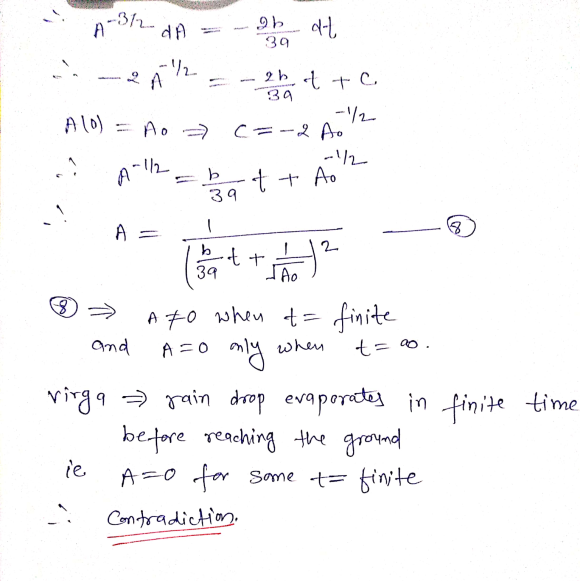 ∴ A^{-3/2} dA = - 2b/3a dt
∴ -2 A^{-1/2} = - 2b/3a t + C
A(0) = A₀ ⇒ C = -2 A₀^{-1/2}
∴ A^{-1/2} = b/3a t + A₀^{-1/2}
∴ A = 1/(b/3a t + 1/√A₀)² —— ⑧
⑧ ⇒ A ≠ 0 when t = finite
and A = 0 only when t = ∞.
virga ⇒ rain drop evaporates in finite time
before reaching the ground
ie A = 0 for some t = finite
∴ Contradiction.